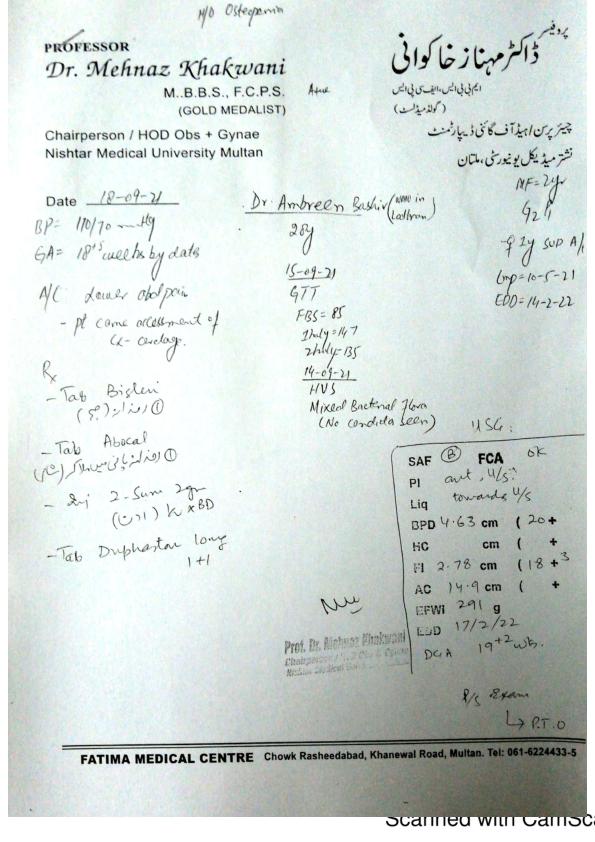 H/O Osteopenia
PROFESSOR
Dr. Mehnaz Khakwani
M..B.B.S., F.C.P.S.
(GOLD MEDALIST)
Chairperson / HOD Obs + Gynae
Nishtar Medical University Multan
پروفیسر
ڈاکٹر مہناز خاکوانی
ایم بی بی ایس، ایف سی پی ایس
(گولڈ میڈلسٹ)
چیئرپرسن / ہیڈ آف گائنی ڈیپارٹمنٹ
نشتر میڈیکل یونیورسٹی، ملتان
Date 18-09-21
BP= 110/70 mmHg
GA= 18+5 weeks by dates
A/C Lower abd pain
- pt came assessment of
Cx-
Rx
- Tab
- Tab
- Inj 2-Sum 2gm
x BD
- Tab Duphaston
1+1
Dr. Ambreen Bashir (WMO in
28y
15-09-21
GTT
FBS = 85
1hrly = 147
2hrly = 135
14-09-21
HVS
Mixed Bacterial flora
(No candida seen)
MF = 2yr
1y SVD A/
Lmp = 10-5-21
EDD = 14-2-22
USG:
SAF B FCA OK
Pl ant, U/S
Liq towards U/S
BPD 4.63 cm ( 20 +
HC cm ( +
Fl 2.78 cm ( 18 + 3
AC 14.9 cm ( +
EFWt 291 g
EDD 17/2/22
DGA 19+2 wk.
P/S Exam
↳ P.T.O
Prof. Dr. Mehnaz Khakwani
FATIMA MEDICAL CENTRE Chowk Rasheedabad, Khanewal Road, Multan. Tel: 061-6224433-5
Scanned with CamSca